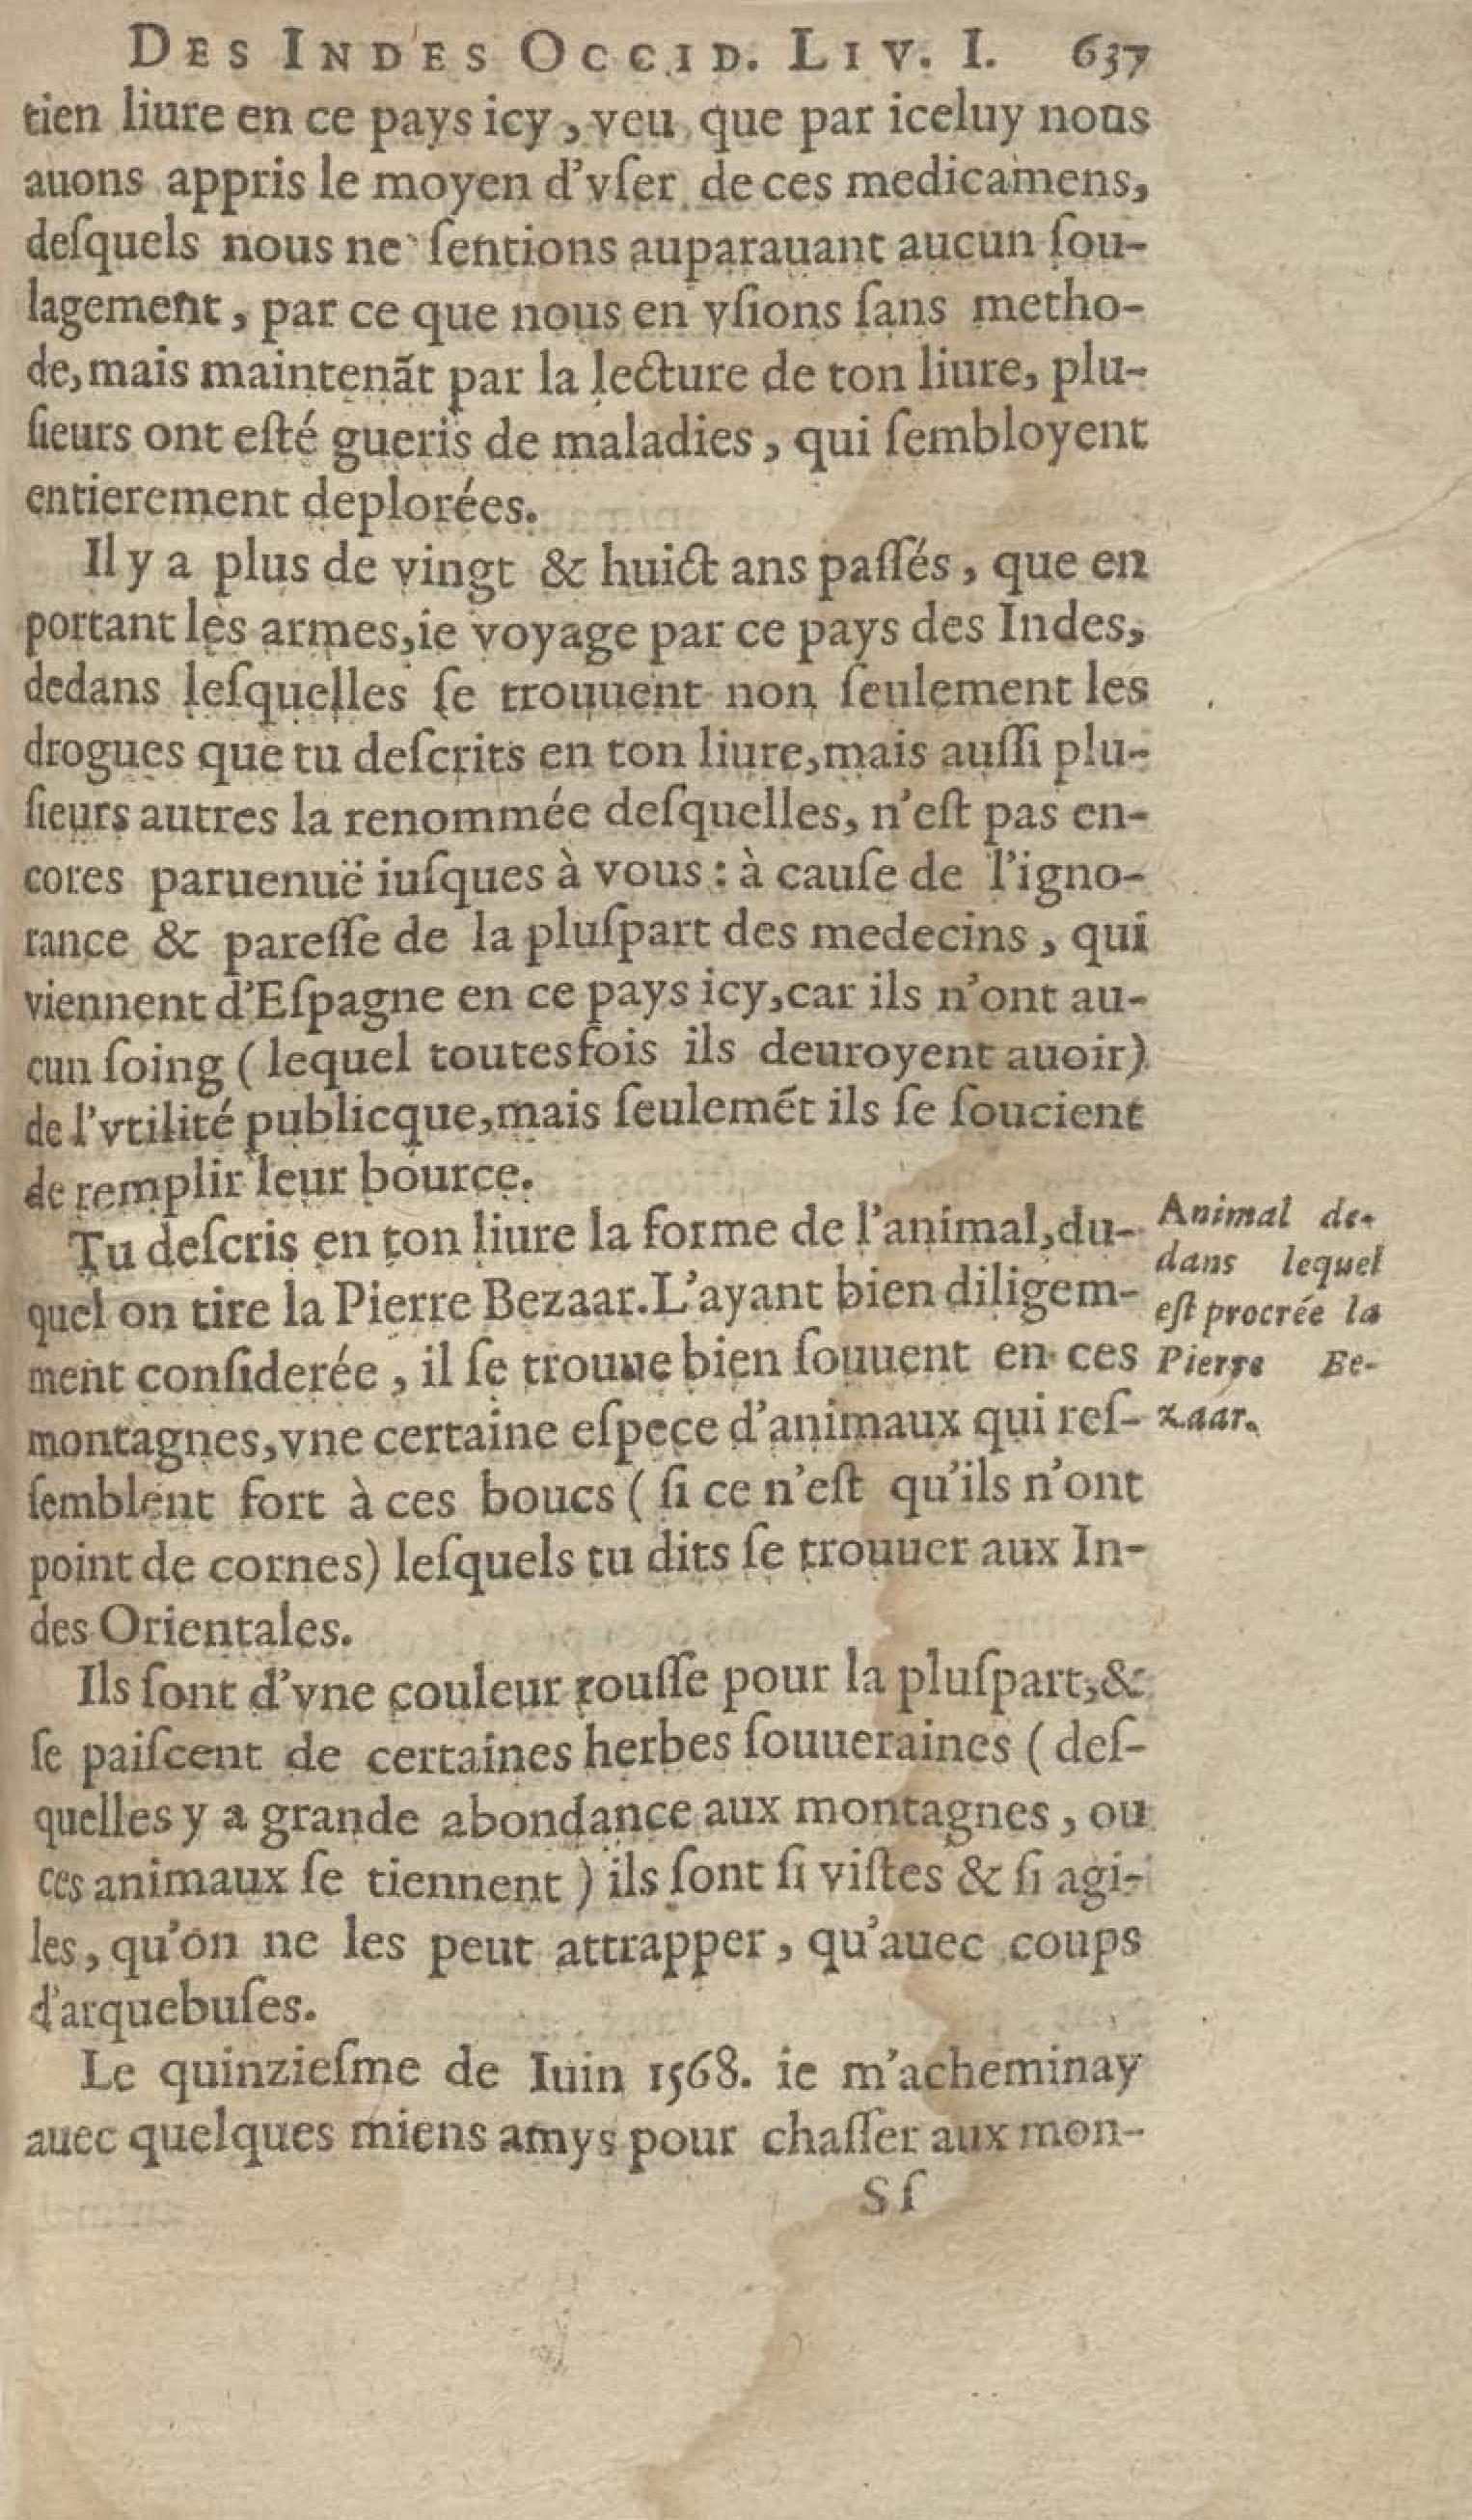 DES INDES OCCID. LIV. I. 637
tien liure en ce pays icy, veu que par iceluy nous
auons appris le moyen d'vſer de ces medicamens,
deſquels nous ne ſentions auparauant aucun ſou-
lagement, par ce que nous en vſions ſans metho-
de, mais maintenãt par la lecture de ton liure, plu-
ſieurs ont eſté gueris de maladies, qui ſembloyent
entierement deplorées.
Il y a plus de vingt & huict ans paſſés, que en
portant les armes, ie voyage par ce pays des Indes,
dedans leſquelles ſe trouuent non ſeulement les
drogues que tu deſcrits en ton liure, mais auſſi plu-
ſieurs autres la renommée deſquelles, n'eſt pas en-
cores paruenuë iuſques à vous: à cauſe de l'igno-
rance & pareſſe de la pluſpart des medecins, qui
viennent d'Eſpagne en ce pays icy, car ils n'ont au-
cun ſoing (lequel toutesfois ils deuroyent auoir)
de l'vtilité publicque, mais ſeulemẽt ils ſe ſoucient
de remplir leur bource.
Tu deſcris en ton liure la forme de l'animal, du-
quel on tire la Pierre Bezaar. L'ayant bien diligem-
ment conſiderée, il ſe trouue bien ſouuent en ces
montagnes, vne certaine eſpece d'animaux qui reſ-
ſemblent fort à ces boucs (ſi ce n'eſt qu'ils n'ont
point de cornes) leſquels tu dits ſe trouuer aux In-
des Orientales.
Animal de-
dans lequel
eſt procrée la
Pierre Be-
zaar.
Ils ſont d'vne couleur rouſſe pour la pluſpart, &
ſe paiſcent de certaines herbes ſouueraines (deſ-
quelles y a grande abondance aux montagnes, ou
ces animaux ſe tiennent) ils ſont ſi viſtes & ſi agi-
les, qu'on ne les peut attrapper, qu'auec coups
d'arquebuſes.
Le quinzieſme de Iuin 1568. ie m'acheminay
auec quelques miens amys pour chaſſer aux mon-
Sſ